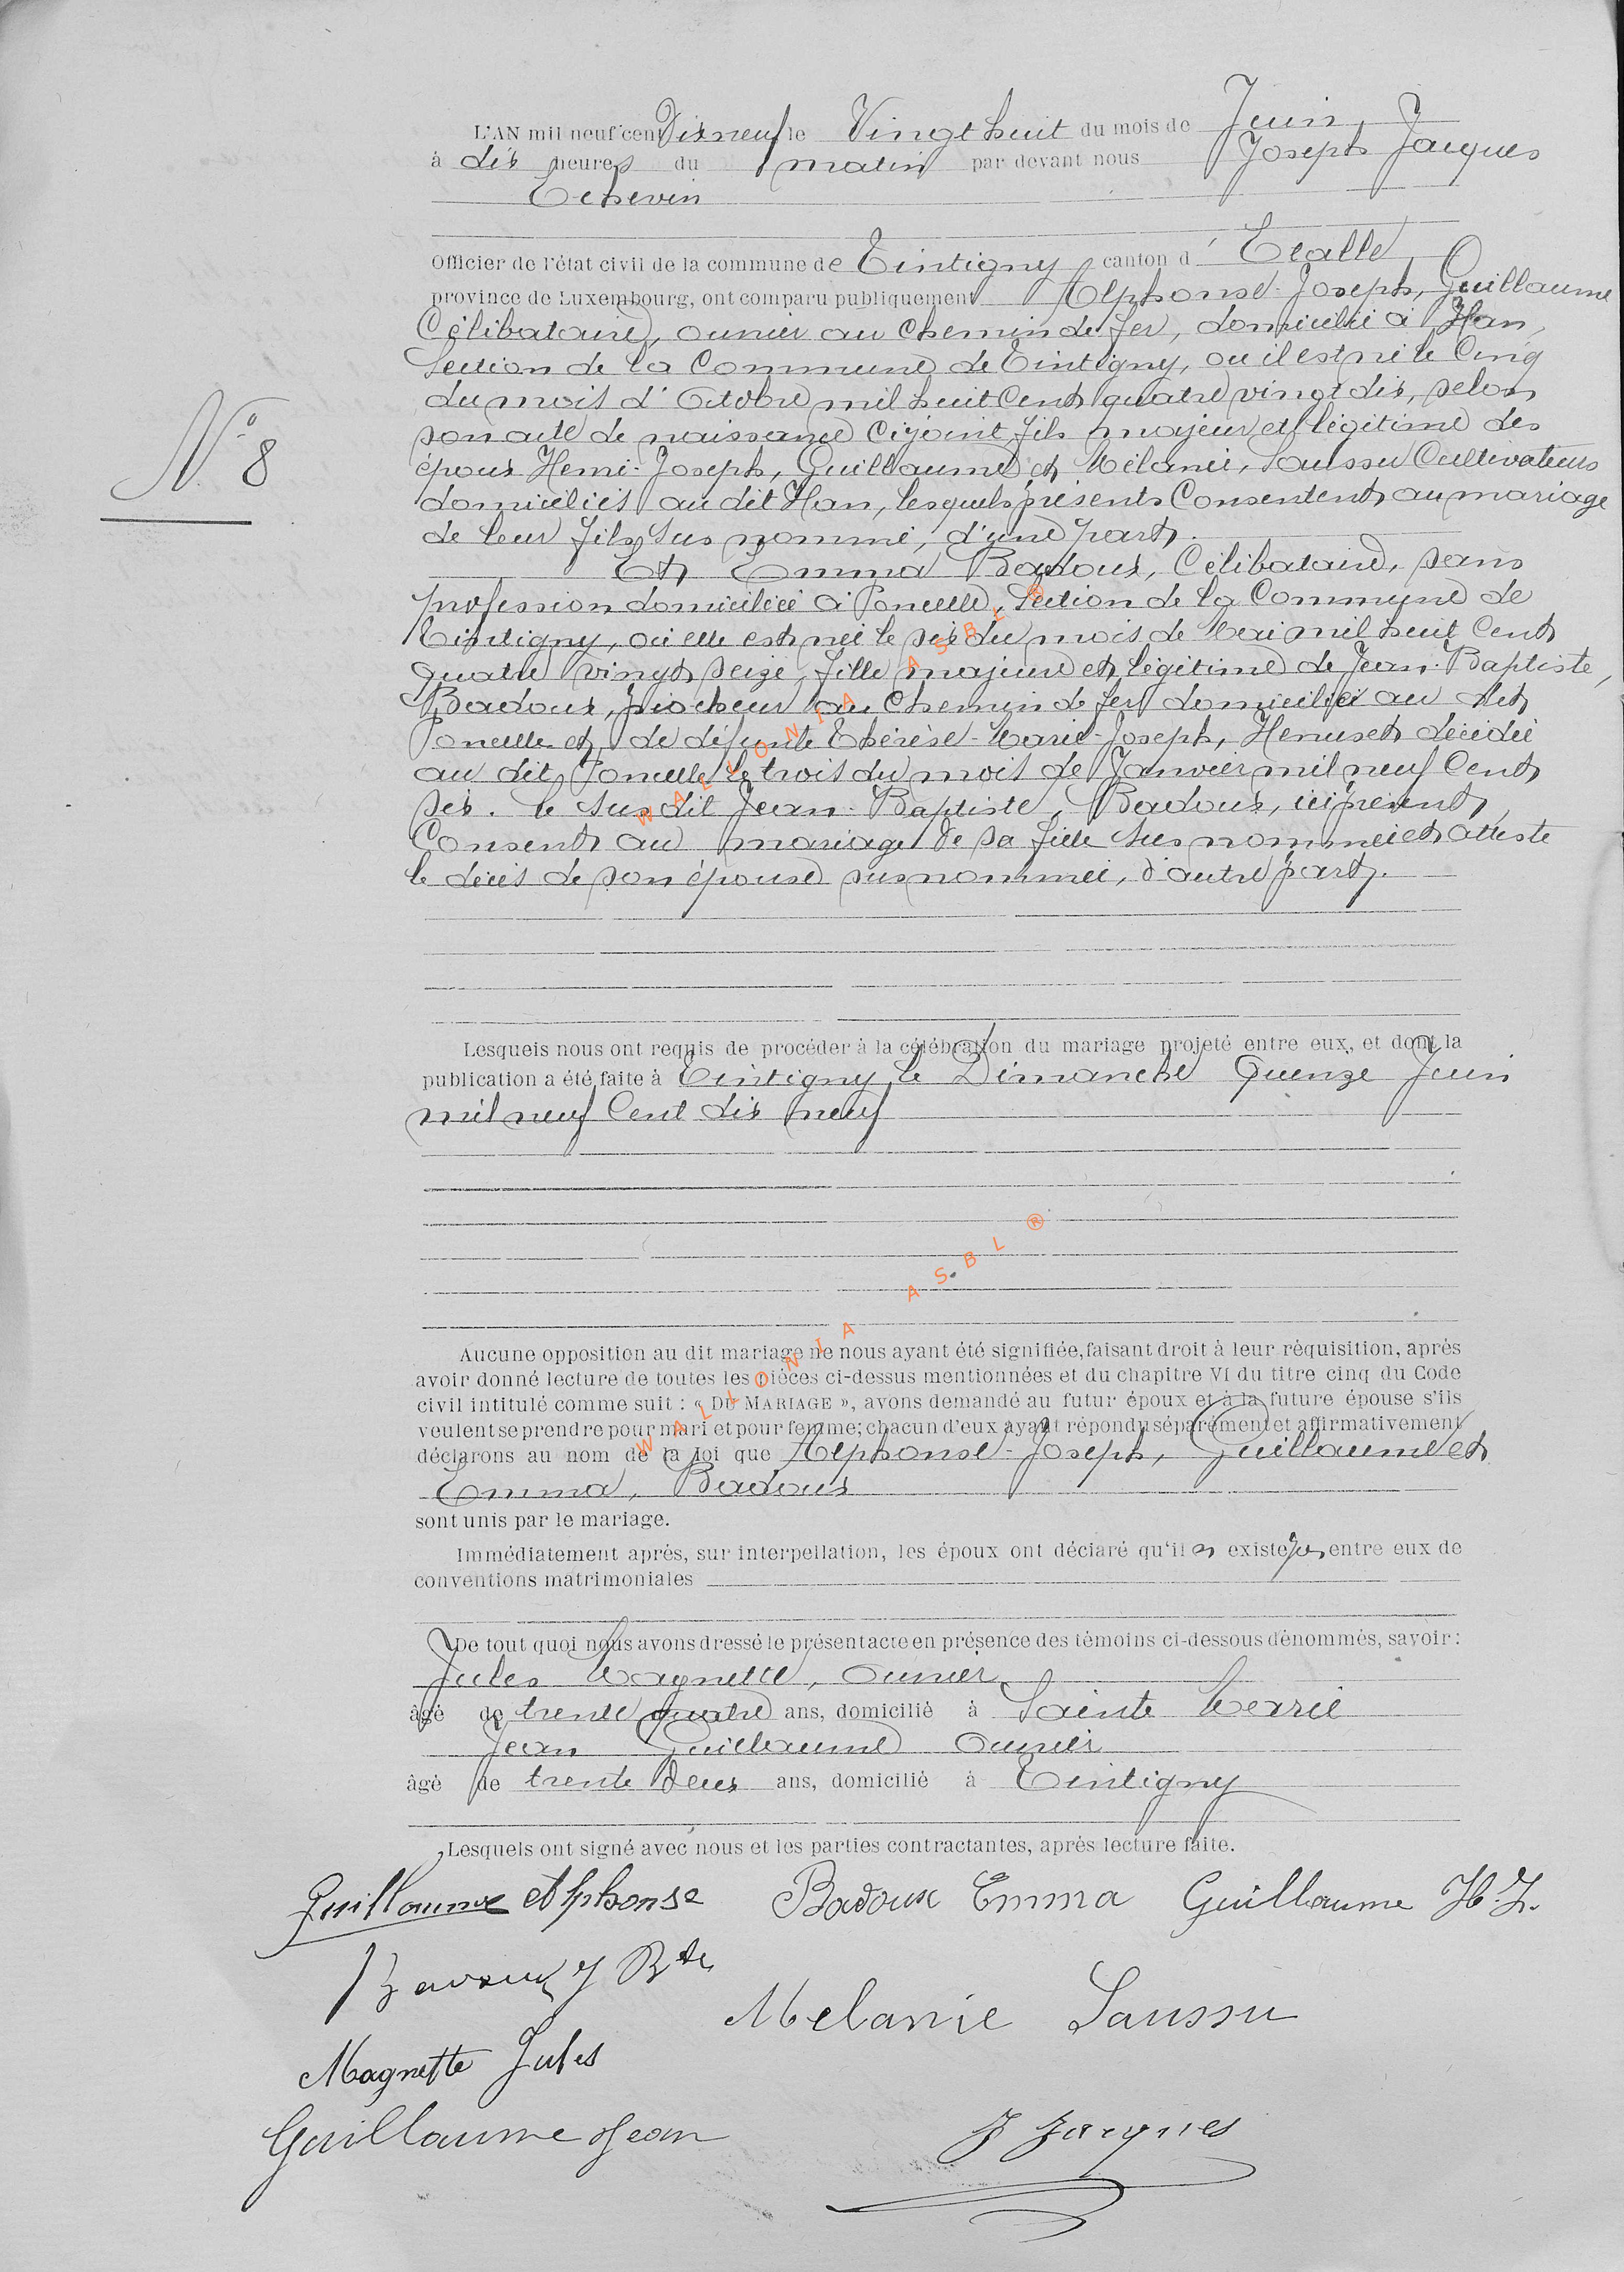 L'AN mil neuf cent Dix neuf le Vingt huit du mois de Juin,
à dix heures du matin par devant nous Joseph Jacques
Echevin
Officier de l'état civil de la commune de Tintigny canton d' Etalle
province de Luxembourg, ont comparu publiquement Alphonse-Joseph, Guillaume
Célibataire, ouvrier au chemin de fer, domicilié à Han,
Section de la Commune de Tintigny, ou il est né le Cinq
du mois d'Octobre mil huit Cent quatre vingt dix, selon
son acte de naissance cijoint, fils majeur et légitime des
époux Henri-Joseph, Guillaume et Mélanie, Saussu Cultivateurs
domiciliés au dit Han, lesquels présents Consentent au mariage
de leur fils sus nommé, d'une part.
Et Emma Badoux, Célibataire, sans
profession domiciliée à Poncelle, Section de la Commune de
Tintigny, où elle est née le six du mois de Mai mil huit Cent
quatre vingt seize, fille majeure et légitime de Jean-Baptiste,
Badoux, piocheur au Chemin de fer domicilié au dit
Poncelle et de défunte Thérèse-Marie-Joseph, Henuset décédée
au dit Poncelle le trois du mois de Janvier mil neuf Cent
six. le sus dit Jean-Baptiste, Badoux, ici présent,
Consent au mariage de sa fille sus nommée et atteste
le décès de son épouse sus nommée, d'autre part.
N° 8
Lesquels nous ont requis de procéder à la célébration du mariage projeté entre eux, et dont la
publication a été faite à Tintigny, le Dimanche Quinze Juin
mil neuf Cent dix neuf
Aucune opposition au dit mariage ne nous ayant été signifiée, faisant droit à leur réquisition, après
avoir donné lecture de toutes les pièces ci-dessus mentionnées et du chapitre VI du titre cinq du Code
civil intitulé comme suit : « DU MARIAGE », avons demandé au futur époux et à la future épouse s'ils
veulent se prendre pour mari et pour femme; chacun d'eux ayant répondu séparément et affirmativement
déclarons au nom de la loi que Alphonse-Joseph, Guillaume et
Emma, Badoux
sont unis par le mariage.
Immédiatement après, sur interpellation, les époux ont déclaré qu'il n existe pas entre eux de
conventions matrimoniales
De tout quoi nous avons dressé le présent acte en présence des témoins ci-dessous dénommés, savoir :
Jules Magnette, Ouvrier,
âgé de trente quatre ans, domicilié à Sainte Marie
Jean Guillaume Ouvrier
âgé de trente deux ans, domicilié à Tintigny
Lesquels ont signé avec nous et les parties contractantes, après lecture faite.
Guillaume Alphonse Badoux Emma Guillaume H. J.
Badoux J Bte
Melanie Saussu
Magnette Jules
Guillaume Jean J Jacques
WALLONIA ASBL ®
WALLONIA ASBL ®